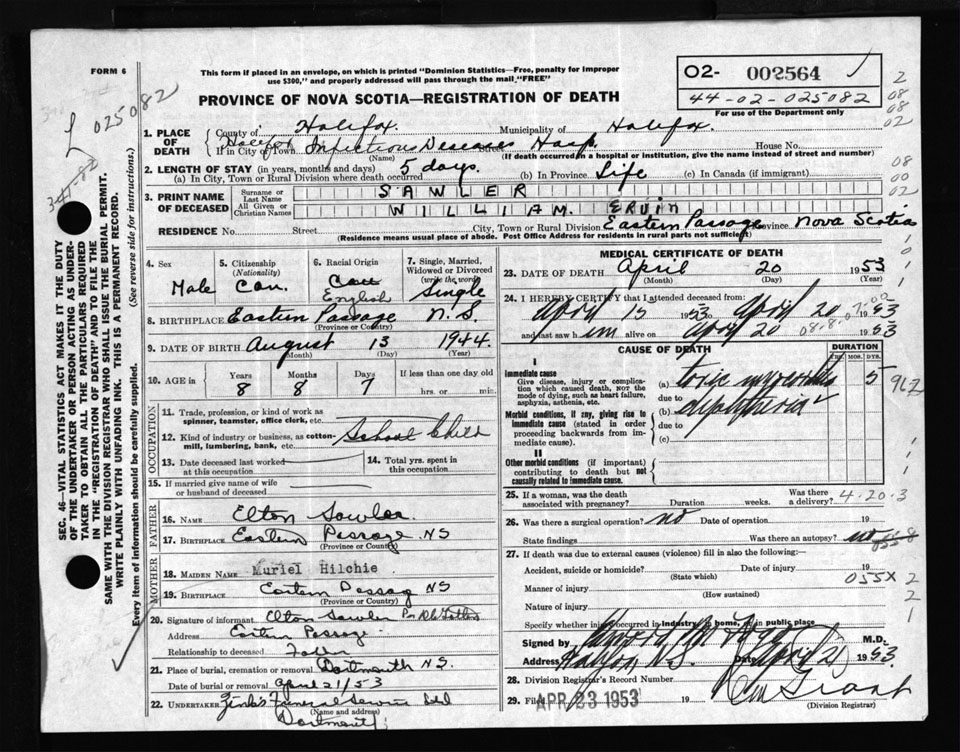 FORM 6
This form if placed in an envelope, on which is printed "Dominion Statistics—Free, penalty for improper
use $300," and properly addressed will pass through the mail "FREE"
PROVINCE OF NOVA SCOTIA—REGISTRATION OF DEATH
O2- 002564
44-02-025082
For use of the Department only
L 025082
2
08
08
02
08
00
02
SEC. 46—VITAL STATISTICS ACT MAKES IT THE DUTY
OF THE UNDERTAKER OR PERSON ACTING AS UNDER-
TAKER TO OBTAIN ALL THE PARTICULARS REQUIRED
IN THE "REGISTRATION OF DEATH" AND TO FILE THE
SAME WITH THE DIVISION REGISTRAR WHO SHALL ISSUE THE BURIAL PERMIT.
WRITE PLAINLY WITH UNFADING INK. THIS IS A PERMANENT RECORD.
Every item of information should be carefully supplied. (See reverse side for instructions.)
1. PLACE OF DEATH County of Halifax. Municipality of Halifax.
If in City or Town Halifax Infectious Diseases Hosp. Street House No.
(Name) (If death occurred in a hospital or institution, give the name instead of street and number)
2. LENGTH OF STAY (in years, months and days) 5 days.
(a) In City, Town or Rural Division where death occurred (b) In Province Life (c) In Canada (if immigrant)
3. PRINT NAME OF DECEASED Surname or Last Name SAWLER
All Given or Christian Names WILLIAM. Ervin
RESIDENCE No. Street City, Town or Rural Division Eastern Passage Province Nova Scotia
(Residence means usual place of abode. Post Office Address for residents in rural parts not sufficient)
4. Sex Male
5. Citizenship (Nationality) Can.
6. Racial Origin Can English
7. Single, Married, Widowed or Divorced (write the word) Single
8. BIRTHPLACE Eastern Passage N.S.
(Province or Country)
9. DATE OF BIRTH August 13 1944.
(Month) (Day) (Year)
10. AGE in Years 8 Months 8 Days 7 If less than one day old hrs. or min.
OCCUPATION
11. Trade, profession, or kind of work as spinner, teamster, office clerk, etc.
School Child
12. Kind of industry or business, as cotton-mill, lumbering, bank, etc.
13. Date deceased last worked at this occupation
14. Total yrs. spent in this occupation
15. If married give name of wife or husband of deceased
FATHER
16. NAME Elton Sawler
17. BIRTHPLACE Eastern Passage NS
(Province or Country)
MOTHER
18. MAIDEN NAME Muriel Hilchie
19. BIRTHPLACE Eastern Passag NS
(Province or Country)
20. Signature of informant Elton Sawler
Address Eastern Passage
Relationship to deceased Father
21. Place of burial, cremation or removal Dartmouth NS.
Date of burial or removal April 21/53
22. UNDERTAKER Zink's Funeral Service Ltd
(Name and address) Dartmouth
MEDICAL CERTIFICATE OF DEATH
23. DATE OF DEATH April 20 1953
(Month) (Day)
24. I HEREBY CERTIFY that I attended deceased from:
April 15 1953 to April 20 1953
and last saw him alive on April 20 1953
CAUSE OF DEATH
DURATION
YRS. MOS. DYS.
I
Immediate cause
Give disease, injury or complication which caused death, NOT the mode of dying, such as heart failure, asphyxia, asthenia, etc.
(a) toxic myocarditis 5
due to
(b) diphtheria
due to
(c)
Morbid conditions, if any, giving rise to immediate cause (stated in order proceeding backwards from immediate cause).
II
Other morbid conditions (if important) contributing to death but not causally related to immediate cause.
25. If a woman, was the death associated with pregnancy? Duration weeks. Was there a delivery? 4.20.3
26. Was there a surgical operation? no Date of operation 19
State findings Was there an autopsy? no
27. If death was due to external causes (violence) fill in also the following:—
Accident, suicide or homicide? Date of injury 19
(State which)
055X
Manner of injury
(How sustained)
Nature of injury
Specify whether injury occurred in industry, in home, or in public place
Signed by M.D.
Address Halifax N.S. Date April 21 1953.
28. Division Registrar's Record Number
29. Filed APR 23 1953 19 Grant
(Division Registrar)